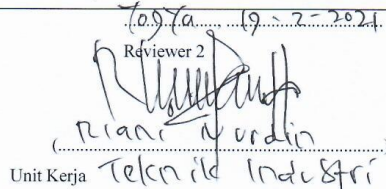 Yogya, 19 - 2 - 2021
Reviewer 2
(Riani Nurdin
Unit Kerja Teknik Industri